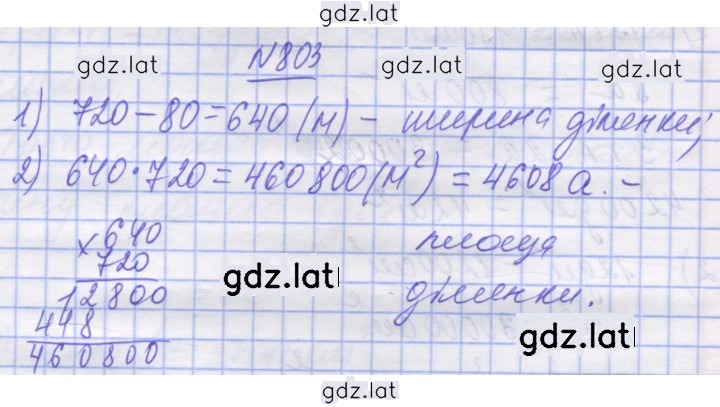 gdz.lat
N803
gdz.lat
gdz.lat
1) 720-80=640 (м) - ширина ділянки;
2) 640·720=460800(м²)=4608а. -
площа
ділянки.
×640
720
12800
448
460800
gdz.lat
gdz.lat
gdz.lat